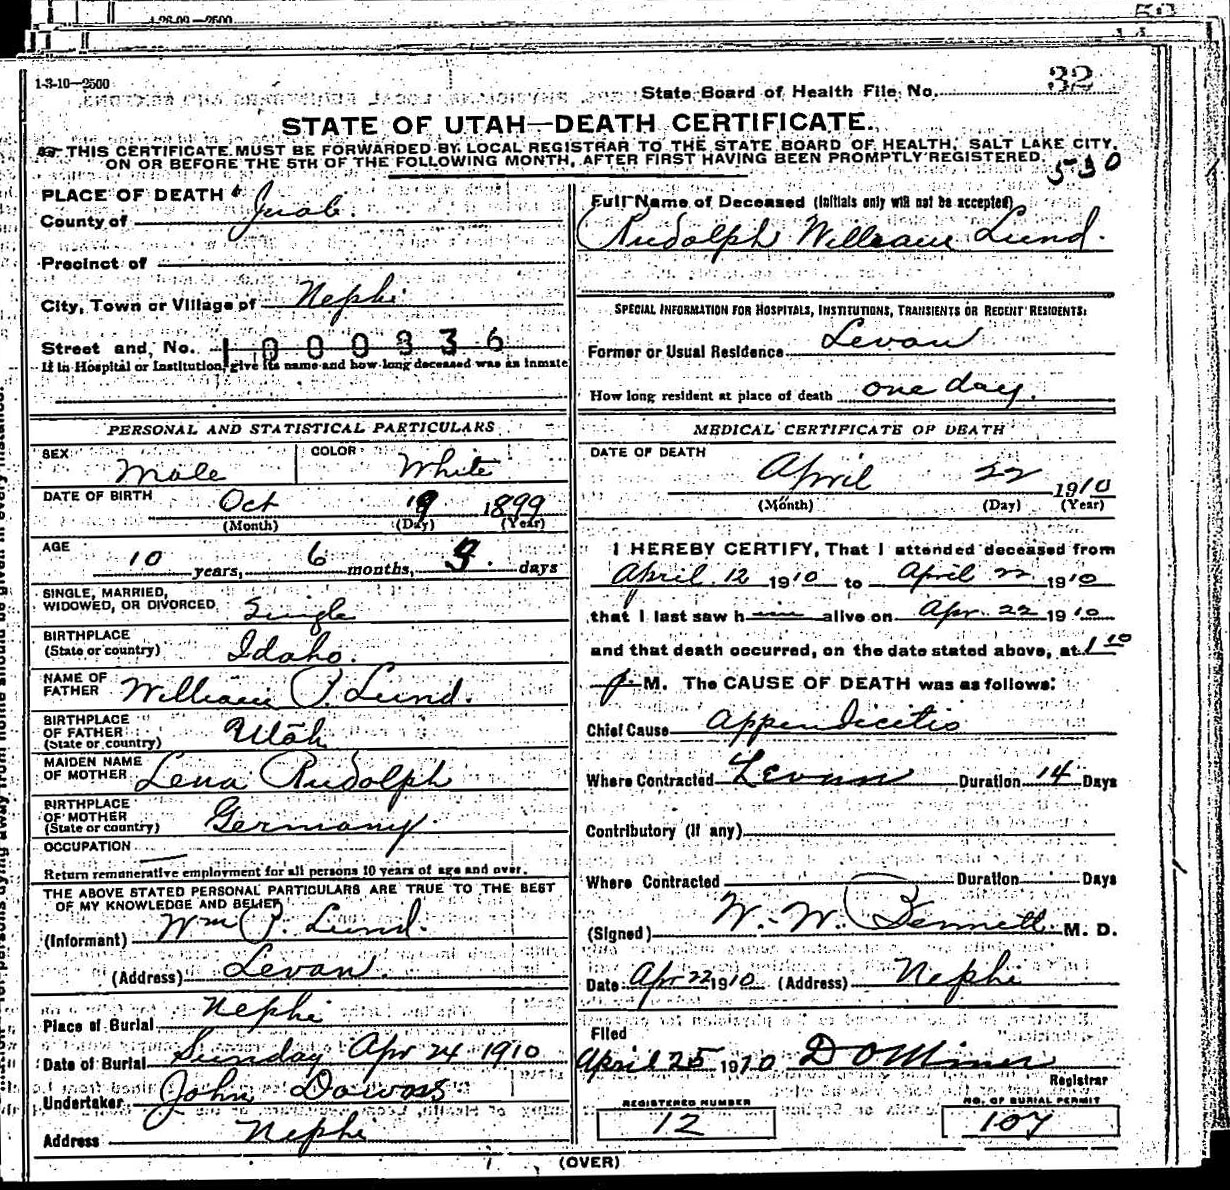 1-26-09—2500
1-3-10—2500
State Board of Health File No. 32
STATE OF UTAH—DEATH CERTIFICATE.
THIS CERTIFICATE MUST BE FORWARDED BY LOCAL REGISTRAR TO THE STATE BOARD OF HEALTH, SALT LAKE CITY,
ON OR BEFORE THE 5TH OF THE FOLLOWING MONTH, AFTER FIRST HAVING BEEN PROMPTLY REGISTERED.
530
PLACE OF DEATH
County of Juab.
Precinct of
City, Town or Village of Nephi
Street and No. 1000336
If in Hospital or Institution, give its name and how long deceased was an inmate
Full Name of Deceased (Initials only will not be accepted)
Rudolph William Lund.
SPECIAL INFORMATION FOR HOSPITALS, INSTITUTIONS, TRANSIENTS OR RECENT RESIDENTS:
Former or Usual Residence Levan
How long resident at place of death one day.
PERSONAL AND STATISTICAL PARTICULARS
SEX Male
COLOR White
DATE OF BIRTH Oct 19 1899
(Month) (Day) (Year)
AGE
10 years, 6 months, 3. days
SINGLE, MARRIED,
WIDOWED, OR DIVORCED Single
BIRTHPLACE
(State or country) Idaho.
NAME OF
FATHER William P. Lund.
BIRTHPLACE
OF FATHER
(State or country) Utah
MAIDEN NAME
OF MOTHER Lena Rudolph
BIRTHPLACE
OF MOTHER
(State or country) Germany.
OCCUPATION
Return remunerative employment for all persons 10 years of age and over.
THE ABOVE STATED PERSONAL PARTICULARS ARE TRUE TO THE BEST
OF MY KNOWLEDGE AND BELIEF
(Informant) Wm P. Lund.
(Address) Levan.
Place of Burial Nephi
Date of Burial Sunday Apr 24 1910
Undertaker John Dowos
Address Nephi
MEDICAL CERTIFICATE OF DEATH
DATE OF DEATH
April 22 1910
(Month) (Day) (Year)
I HEREBY CERTIFY, That I attended deceased from
April 12 1910 to April 22 1910
that I last saw h im alive on Apr. 22 1910
and that death occurred, on the date stated above, at 1 10
p. M. The CAUSE OF DEATH was as follows:
Chief Cause Appendicitis
Where Contracted Levan Duration 14 Days
Contributory (if any)
Where Contracted Duration Days
(Signed) W. W. Bennett. M. D.
Date Apr 22 1910 (Address) Nephi
Filed
April 25 1910 D O Miner
Registrar
REGISTERED NUMBER
12
NO. OF BURIAL PERMIT
107
(OVER)